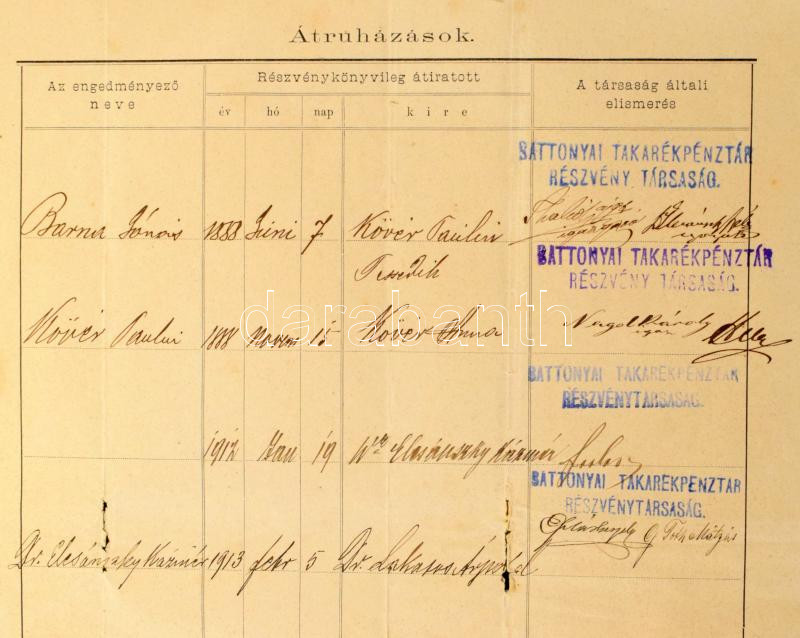 Átruházások.
Az engedményező
neve
Részvénykönyvileg átiratott
év hó nap kire
A társaság általi
elismerés
BATTONYAI TAKARÉKPÉNZTÁR
RÉSZVÉNY TÁRSASÁG.
Barna János 1888 Juni 7 Kövér Paulin
BATTONYAI TAKARÉKPÉNZTÁR
RÉSZVÉNY TÁRSASÁG.
darabanth
Kövér Paulin 1888 Novem 15 Kövér Anna Nagel Károly
BATTONYAI TAKARÉKPÉNZTÁR
RÉSZVÉNYTÁRSASÁG.
1912 Jan 19 Elcsánszky Kázmér
BATTONYAI TAKARÉKPÉNZTÁR
RÉSZVÉNYTÁRSASÁG.
Tóth Mátyás
Dr. Elcsánszky Kázmér 1913 febr 5 Dr. Lakatos Árpád